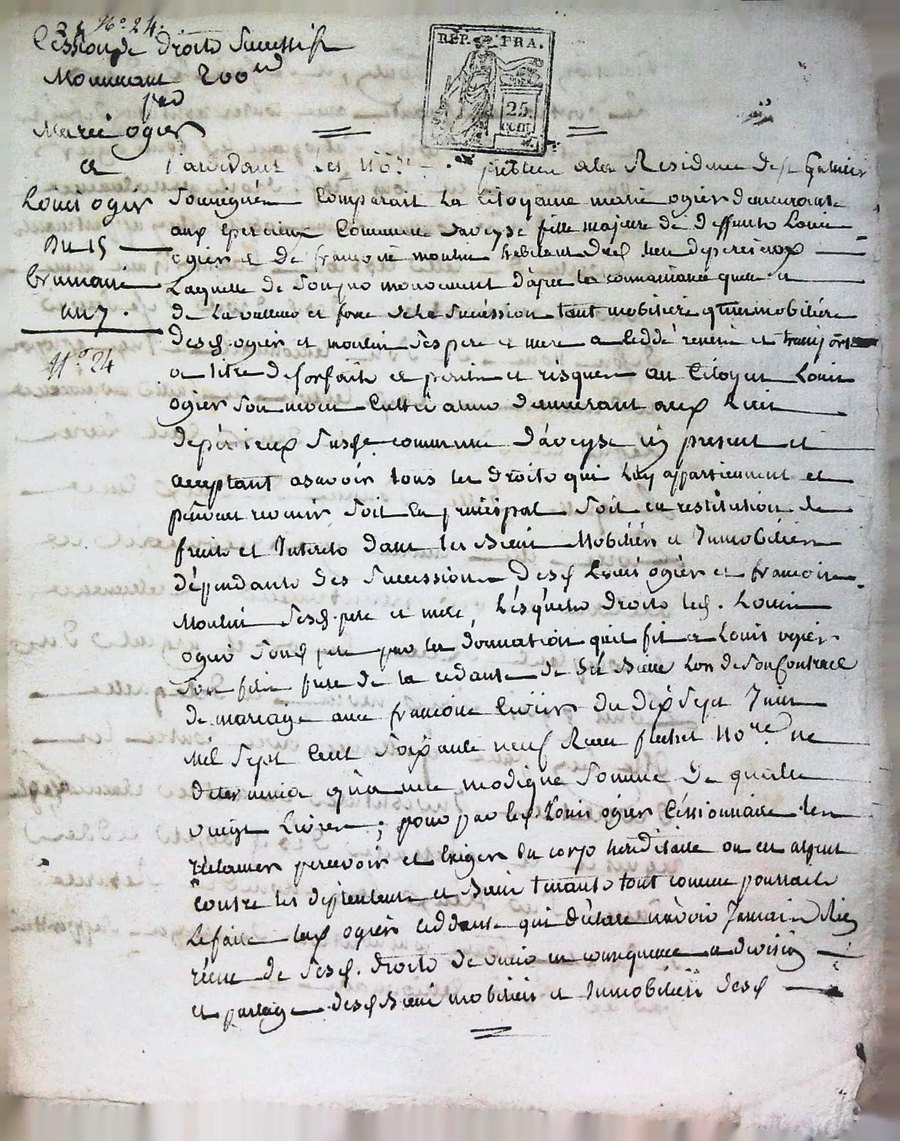 N.º 24.
Cession de droits successifs
Mouvant 200
par
Marie ogier
et
Louis ogier
Du 15
brumaire
an 7.
N.º 24
REP. FRA.
25
CEN.
Pardevant les No.res publics à la Residence de
Soussignés Comparait La Citoyenne marie ogier demeurante
aux Epercieux Commune d'aveyse fille majeure de deffunts Louis
ogier et de francoise moulin habitant dud. lieu depercieux
Laquelle de son gré
de La valleur et force de la Succession tant mobiliere qu'immobiliére
desd. ogier et moulin Ses pere et mere a ceddé remis et transporté
a titre de forfaits et perils et risques au Citoyen Louis
ogier Son neveu Cultivateur demeurant aux Lieu
depercieux Susd. commune d'aveyse ici present et
acceptant asavoir tous les droits qui luy appartiennent et
peuvent revenir Soit en principal Soit en restitution de
fruits et Interets dans les Biens Mobiliers et Immobiliers
dépendants des Successions desd. Louis ogier et francoise
Moulin Sesd. pere et mere, Lesquels droits led. Louis
ogier Sond. pere par la donnation qu'il fit a Louis ogier
Son fils frere de la cédante de Ses Biens Lors de Son Contract
de mariage avec francoise du dix Sept Juin
Mil Sept Cent Soixante neuf Reçu No.re ne
determina qu'a une modique Somme de quatre
vingt Livres; pour par led. Louis ogier Cessionnaire les
reclamer percevoir et Exiger du corps hereditaire ou en argent
contre les détenteurs et Biens tenants tout comme pourrait
Le faire lad. ogier ceddante qui déclare n'avoir Jamais Rien
de Sesd. droits de venir en consequence a division
et partage desd. Biens mobiliers et Immobiliers desd.